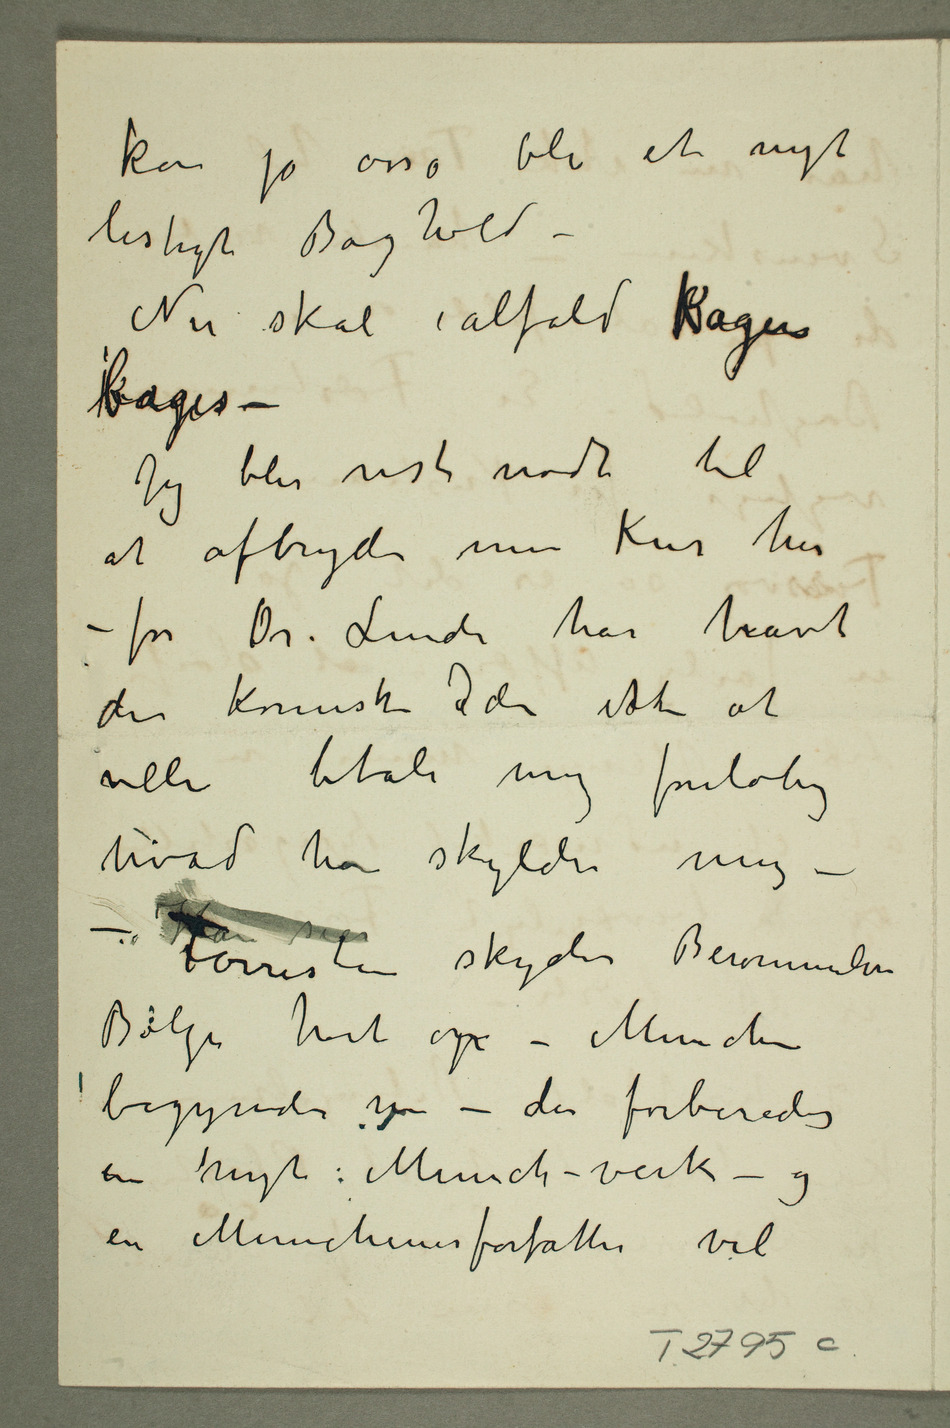 kan jo osså bli et nyt
listigt Baghold –
Nu skal ialfald Kagen
bages –
Jeg blir nist nødt til
at afbryde min Kur her
– for Dr. Linde har havt
den komiske Ide ikke at
ville betale mig foreløbig
hvad han skylder mig –
– Han siger
forresten skyder Berømmelsens
Bølge høit op – München
begynder nu – der forberedes
en nyt: Munch-verk – og
en Münchenerforfatter vil
T 2795 c